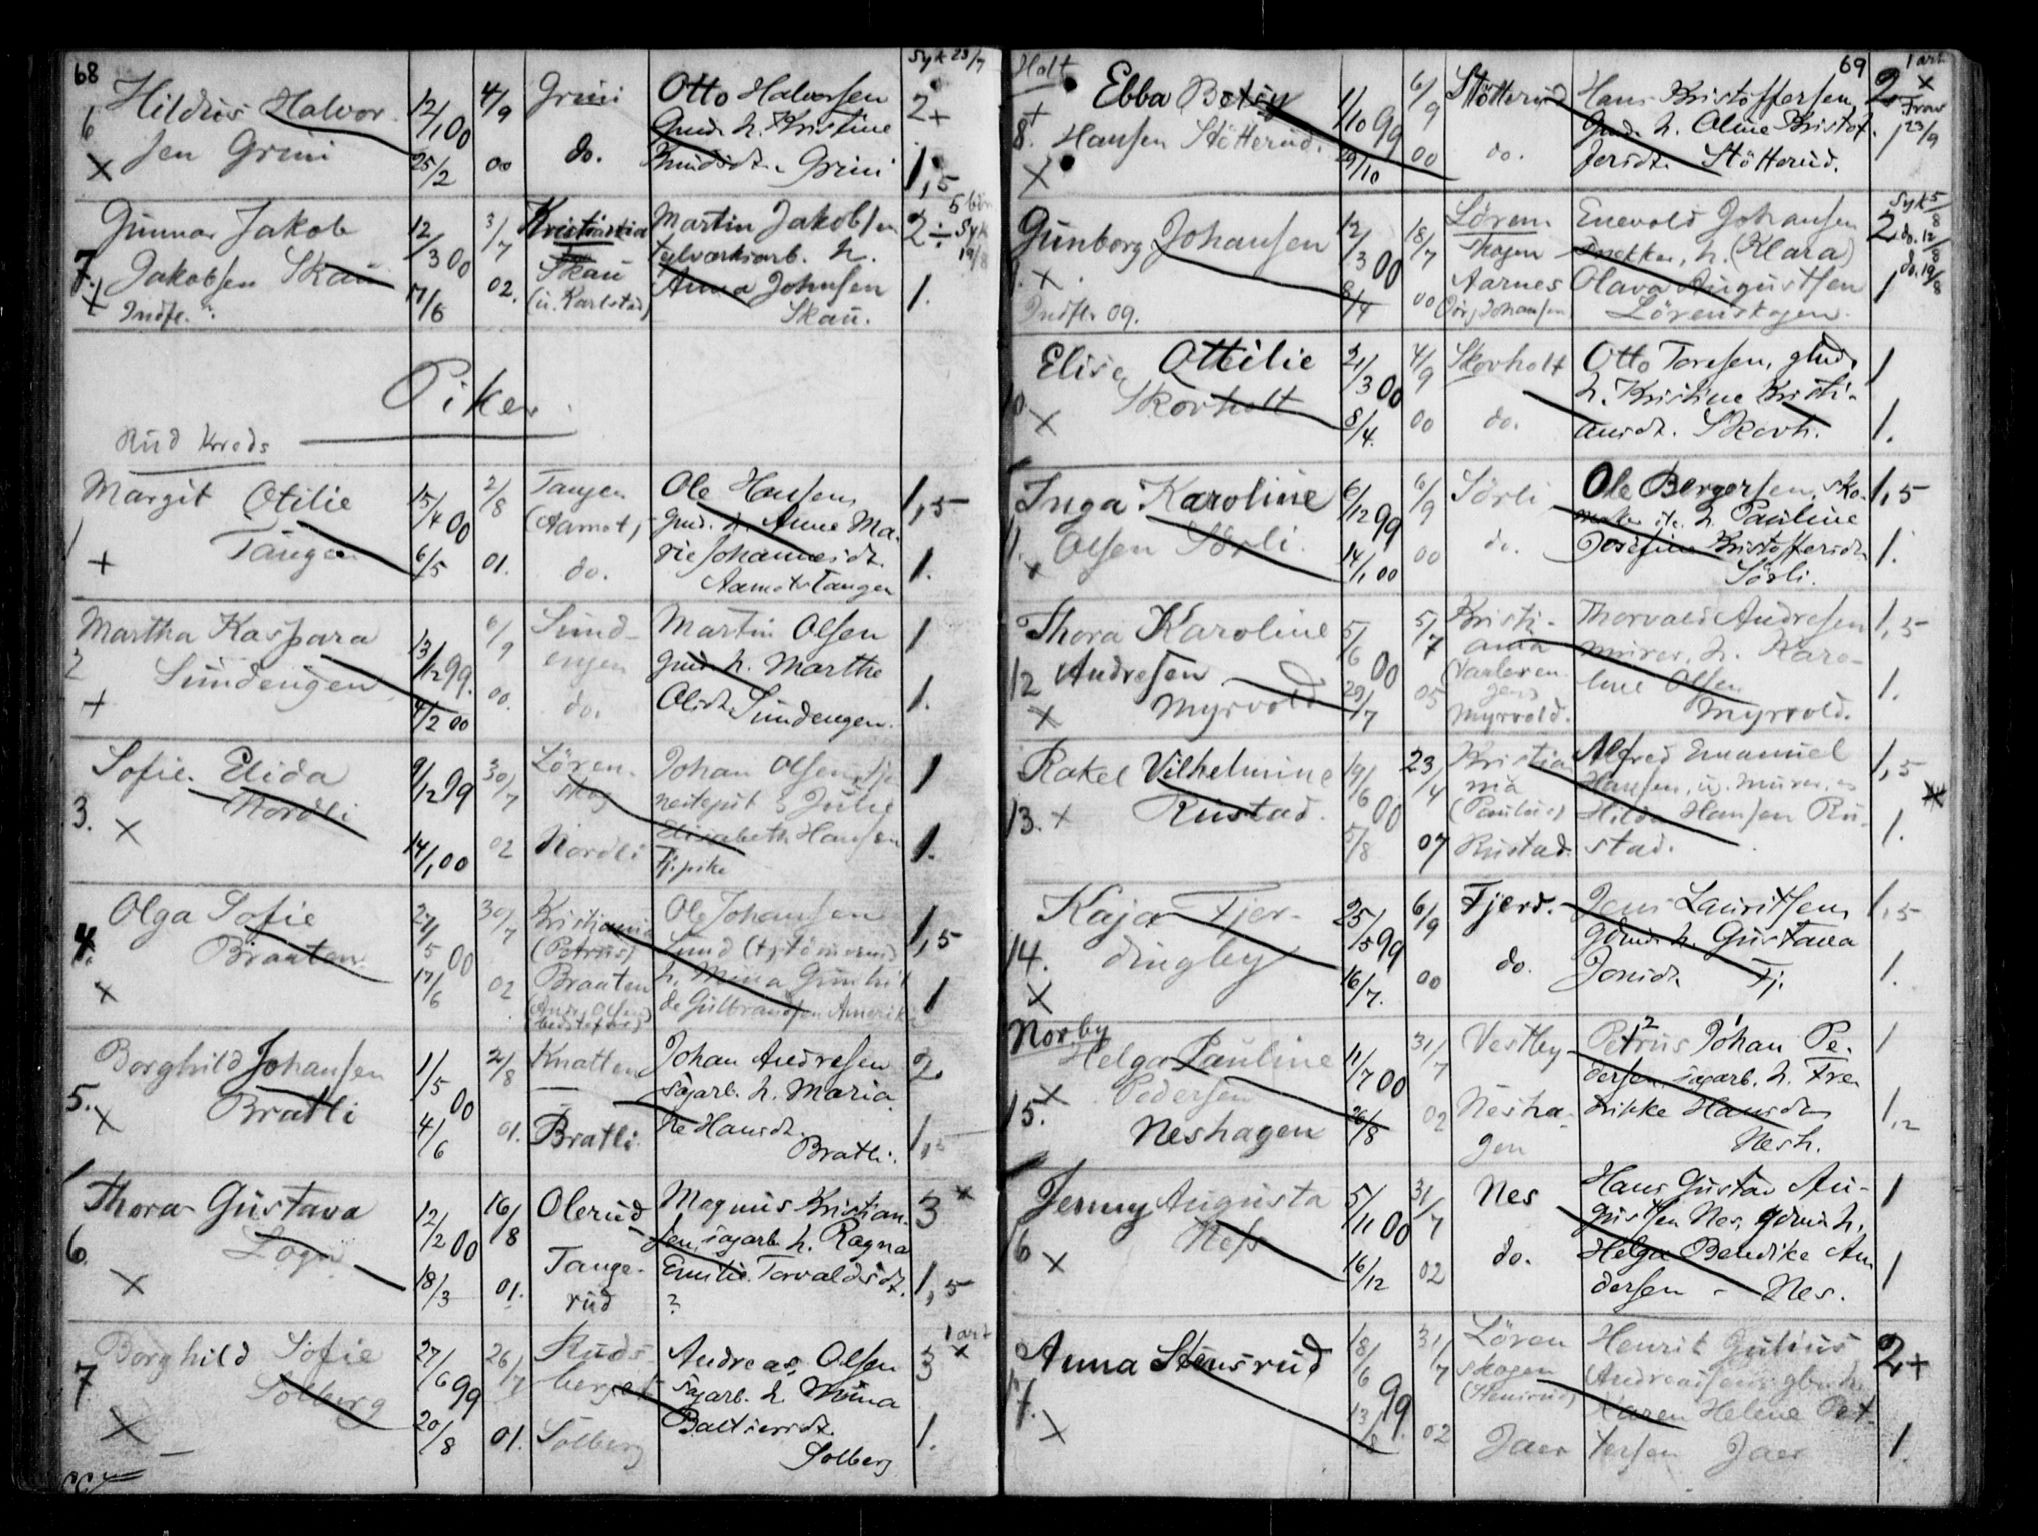 68
Syk 23/7
6 Hildus Halvor- 12/1 00 4/9 Grini Otto Halvorsen 2+
sen Grini Gmd. h. Kristine
x 25/2 00 do. Knudsdt. Grini 1,5
Gunnar Jakob 12/3 00 3/7 Kristiania Martin Jakobsen 2÷ Syk 19/8
7. Jakobsen Skau Skau h.
x Indfl. 17/6 02. (u. Karlstad) Anna Johnsen 1.
Skau.
Piker
Rud Kreds
Margit Otilie 15/4 00 2/8 Tangen Ole Hansen, 1,5
1 Tangen (Aamot) gmd. h. Anne Ma-
+ 6/5 01. do. rie Johannesdt. 1.
Aamot Tangen
Martha Kaspara 13/12 99. 6/9 Sund- Martin Olsen 1
2 Sundengen engen gmd. h. Marthe
+ 4/2 00 00. do. Olsdt. Sundengen. 1.
Sofie Elida 9/12 99 30/7 Lören- Johan Olsen 1
3. Nordli skog Julie
x 14/1 00 02 Nordli Elisabeth Hansen 1.
Tj.pike
Olga Sofie 21/5 00 30/7 Kristiania Ole Johansen 1,5
4. Braaten (Petrus) Sund
x 17/6 02 Braaten h. Mina Gunhil 1
de Gulbrandsen Amerika
Borghild Johansen 1/5 00 2/8 Knatten Johan Andresen 2
5. Bratli sagarb. h. Maria
x 4/6 01. Bratli ne Hansdt. 1,5
Bratli.
Thora Gustava 12/2 00 16/8 Olerud Magnus Kristian- 3 x
6. sen, sagarb. h. Ragna
x 18/3 01. Tange- Emilie Torvaldsdt. 1,5
rud ?
1 art
Borghild Sofie 27/6 99 26/7 Ruds- Andreas Olsen 3 x
7 Solberg berget sagarb. h. Mina
x 20/8 01. Solberg Baltsersdt. 1.
Solberg
69
1 art
Holt
+ Ebba Betsy 1/10 99 6/9 Stötterud Hans Kristoffersen, 2 x
8. Hansen Stötterud. gmd. h. Oline Kristof- 1 23/9
x 29/10 00 do. fersdt. Stötterud.
Syk 5/8
Gunborg Johansen 12/3 00 18/7 Lören- Enevold Johansen 2 do. 12/8
x skogen snekker, h. (Klara) do. 19/8
8/4 00 Aarnes Olava Augustsen 1
Indfl. 09. Lörenskogen.
Elise Ottilie 21/3 00 4/9 Skovholt Otto Toresen, gmd. 1
10. Skovholt h. Kristine Kristi-
x 8/4. 00 do. ansdt. Skovh. 1.
Inga Karoline 6/12 99 6/9 Sörli Ole Bergersen, sko- 1,5
11. Olsen Sörli maker h. Pauline
x 14/1 00 00 do. Josefine Kristoffersdt. 1.
Sörli.
Thora Karoline 5/6 00 5/7 Kristi- Thorvald Andresen 1,5
12 Andresen ania murer, h. Karo-
x Myrvold 29/7 05 (Vaaleren- line Olsen 1.
gen)
Myrvold. Myrvold.
Rakel Vilhelmine 19/6 00 23/4 Kristia Alfred Emanuel 1,5
13. x Rustad. nia Hansen, u. murer, x
(Paulus) Hilda Hansen Ru- 1.
5/8 07 Rustad. stad.
Kaja Fjer- 25/5 99 6/9 Fjerd. Jens Lauritsen, 1,5
14. dingby gdmd. h. Gustava
x 16/7. 00 do. Jonsdt. Fj. 1.
Norby
Helga Pauline 11/7 00 31/7 Vestby Petrus Johan Pe- 1
15. x Pedersen dersen, sagarb. h. Fre
Neshagen 26/8 02 Nesha- drikke Hansdt. 1,2
gen Nesh.
Jenny Augusta 5/11 00 31/7 Nes Hans Gustav Au- 1
16 Ness gustsen Nes, gdmd. h.
x 16/12 02 do. Helga Bendike An 1
dersen - Nes.
Anna Stensrud 18/6 99. 31/7 Lören Henrik Julius 2+
17. skogen (Andreassen)
x (Stensrud) Karen Helene Pet-
13/8 02 Jaer tersen Jaer 1.